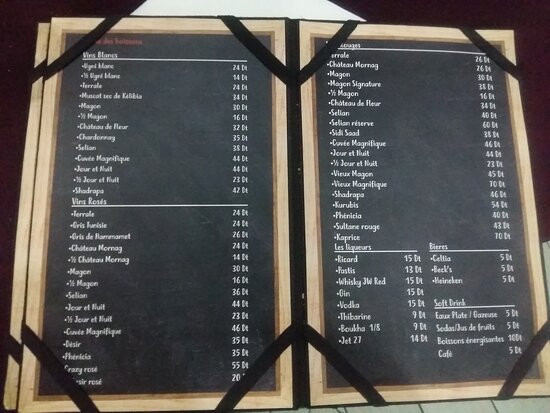 des boissons
Vins Blancs
•Ugni blanc 24 Dt
•½ Ugni blanc 14 Dt
•Terrale 24 Dt
•Muscat sec de Kélibia 34 Dt
•Magon 30 Dt
•½ Magon 16 Dt
•Château de Fleur 32 Dt
•Chardonnay 35 Dt
•Selian 38 Dt
•Cuvée Magnifique 44 Dt
•Jour et Nuit 44 Dt
•½ Jour et Nuit 23 Dt
•Shadrapa 42 Dt
Vins Rosés
•Terrale 24 Dt
•Gris Tunisie 24 Dt
•Gris de Hammamet 26 Dt
•Château Mornag 24 Dt
•½ Château Mornag 14 Dt
•Magon 30 Dt
•½ Magon 16 Dt
•Selian 36 Dt
•Jour et Nuit 44 Dt
•½ Jour et Nuit 23 Dt
•Cuvée Magnifique 46 Dt
•Désir 35 Dt
•Phénicia 35 Dt
Crazy rosé 55 Dt
20
Rouges
Terrale 26 Dt
•Château Mornag 26 Dt
•Magon 30 Dt
•Magon Signature 38 Dt
•½ Magon 16 Dt
•Château de Fleur 34 Dt
•Selian 40 Dt
•Selian réserve 60 Dt
•Sidi Saad 38 Dt
•Cuvée Magnifique 46 Dt
•Jour et Nuit 44 Dt
•½ Jour et Nuit 23 Dt
•Vieux Magon 45 Dt
•Vieux Magnifique 70 Dt
•Shadrapa 46 Dt
•Kurubis 54 Dt
•Phénicia 40 Dt
•Sultane rouge 43 Dt
•Kaprice 70 Dt
Les liqueurs
•Ricard 15 Dt
•Pastis 13 Dt
•Whisky JW Red 15 Dt
•Gin 15 Dt
•Vodka 15 Dt
•Thibarine 9 Dt
•Boukha 1/8 9 Dt
•Jet 27 14 Dt
Bieres
•Celtia 5 Dt
•Beck's 5 Dt
•Heineken 5 Dt
Soft Drink
Eaux Plate / Gazeuse 5 Dt
Sodas/Jus de fruits 5 Dt
Boissons énergisantes 10Dt
Café 5 Dt